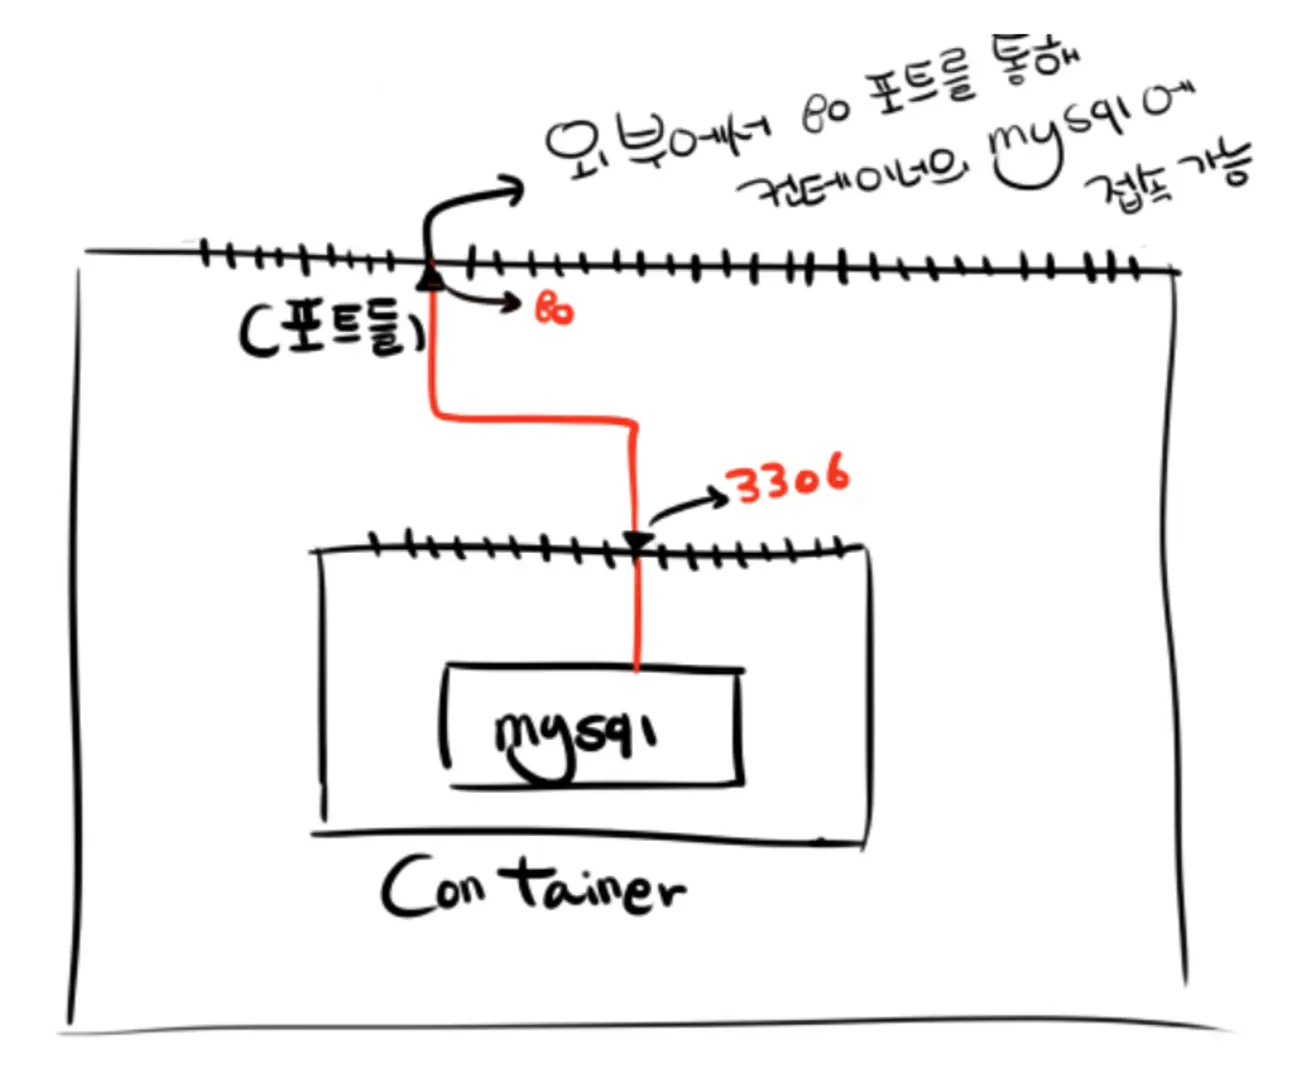 외부에서 80 포트를 통해
컨테이너의 mysql에
접속 가능
80
(포트들)
3306
mysql
Container